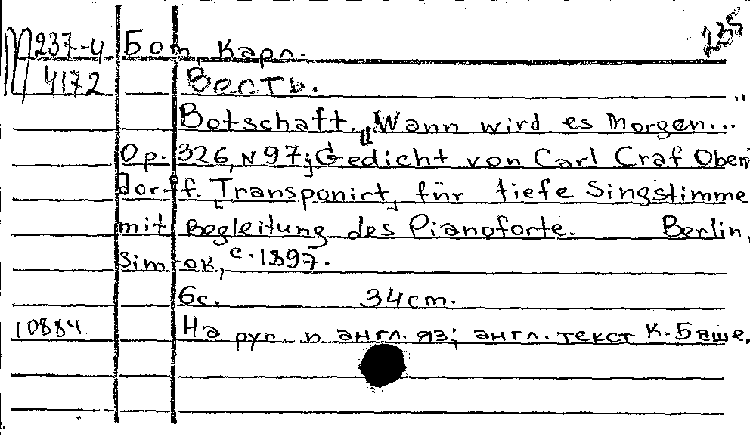 235
237-4 Бом, Карл.
4172 Весть.
Botschaft. „Wann wird es Morgen..."
Op. 326, N 97; Gedicht von Carl Graf Obern
dorff. [Transponirt] für tiefe Singstimme
mit Begleitung des Pianoforte. Berlin,
Simrok, c.1897.
6с. 34cm.
10884 На рус. и англ. яз; англ. текст К.